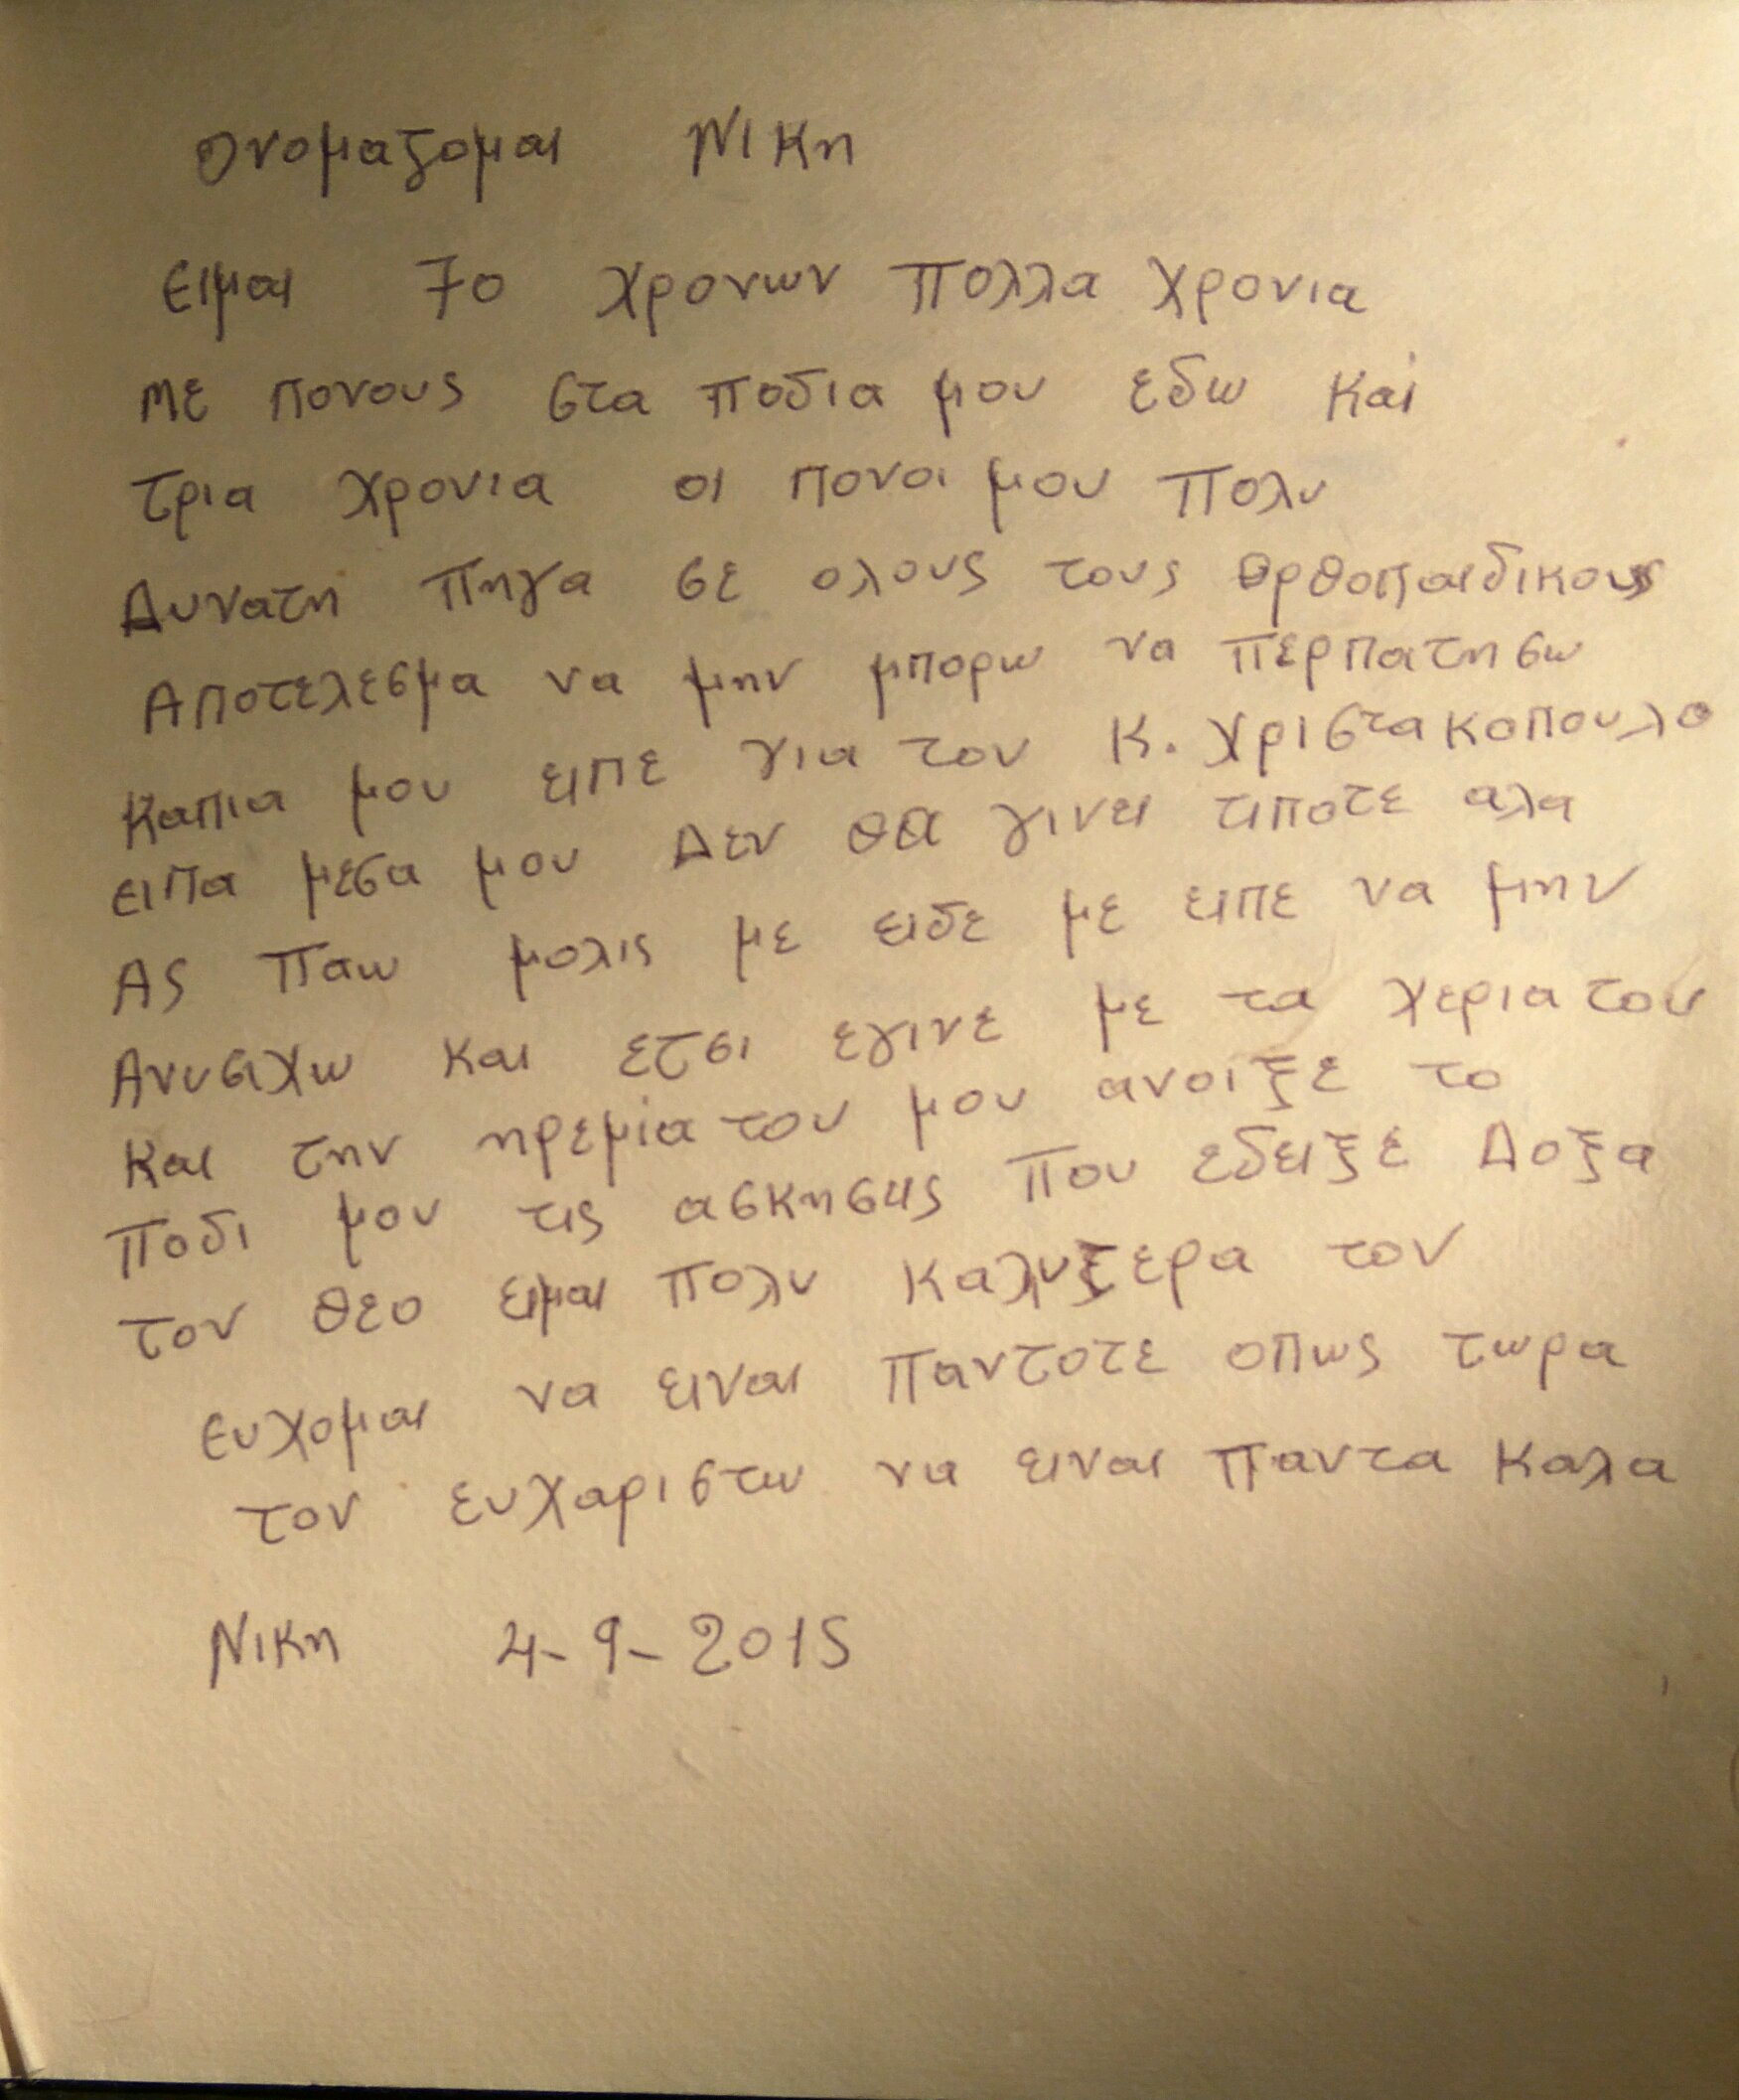 ονομαζομαι Νικη
ειμαι 70 χρονων πολλα χρονια
με πονους στα ποδια μου εδω και
τρια χρονια οι πονοι μου πολυ
Δυνατη πηγα σε ολους τους ορθοπαιδικους
Αποτελεσμα να μην μπορω να περπατησω
καπια μου ειπε για τον Κ. Χριστακοπουλο
ειπα μεσα μου Δεν θα γινει τιποτε αλα
Ας παω μολις με ειδε με ειπε να μην
Ανυσιχω και ετσι εγινε με τα χερια του
και την ηρεμία του μου ανοιξε το
ποδι μου τις ασκησεις που εδειξε Δοξα
τον θεο ειμαι πολυ καλυτερα τον
ευχομαι να ειναι παντοτε οπως τωρα
τον ευχαριστω να ειναι παντα καλα
Νικη 4-9-2015